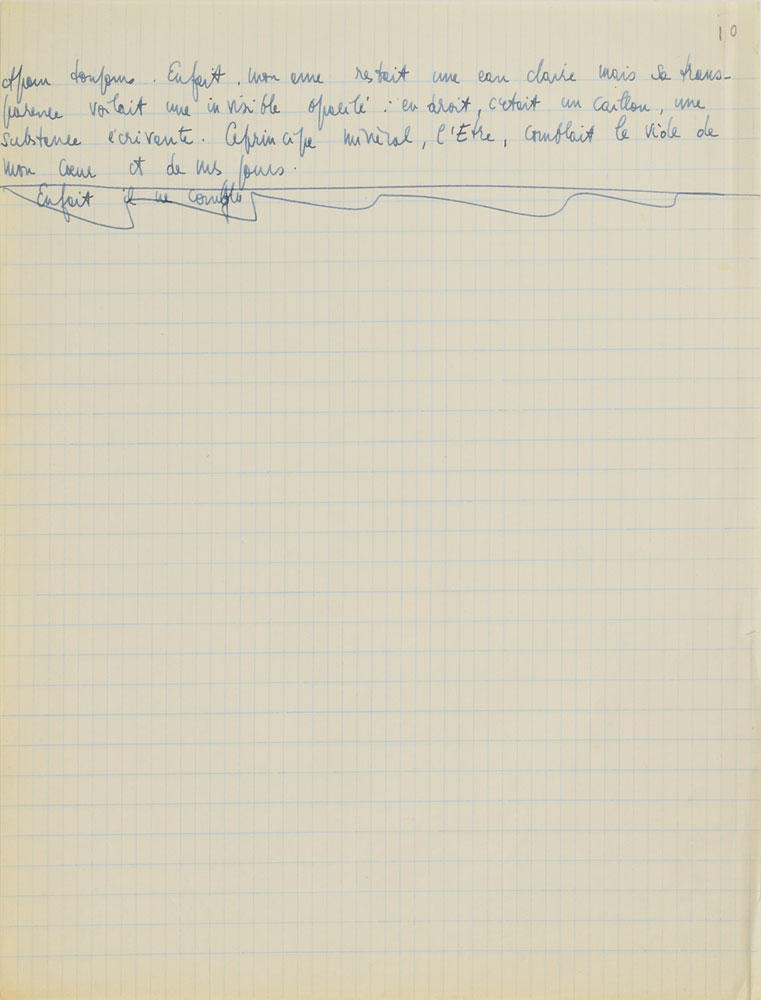 10
et pour toujours. En fait, mon ame restait une eau claire mais sa trans-
parence voilait une invisible opacité : en droit, c'était un caillou, une
substance écrivante. Ce principe minéral, l'Etre, comblait le vide de
mon cœur et de mes jours.
En fait il ne combla